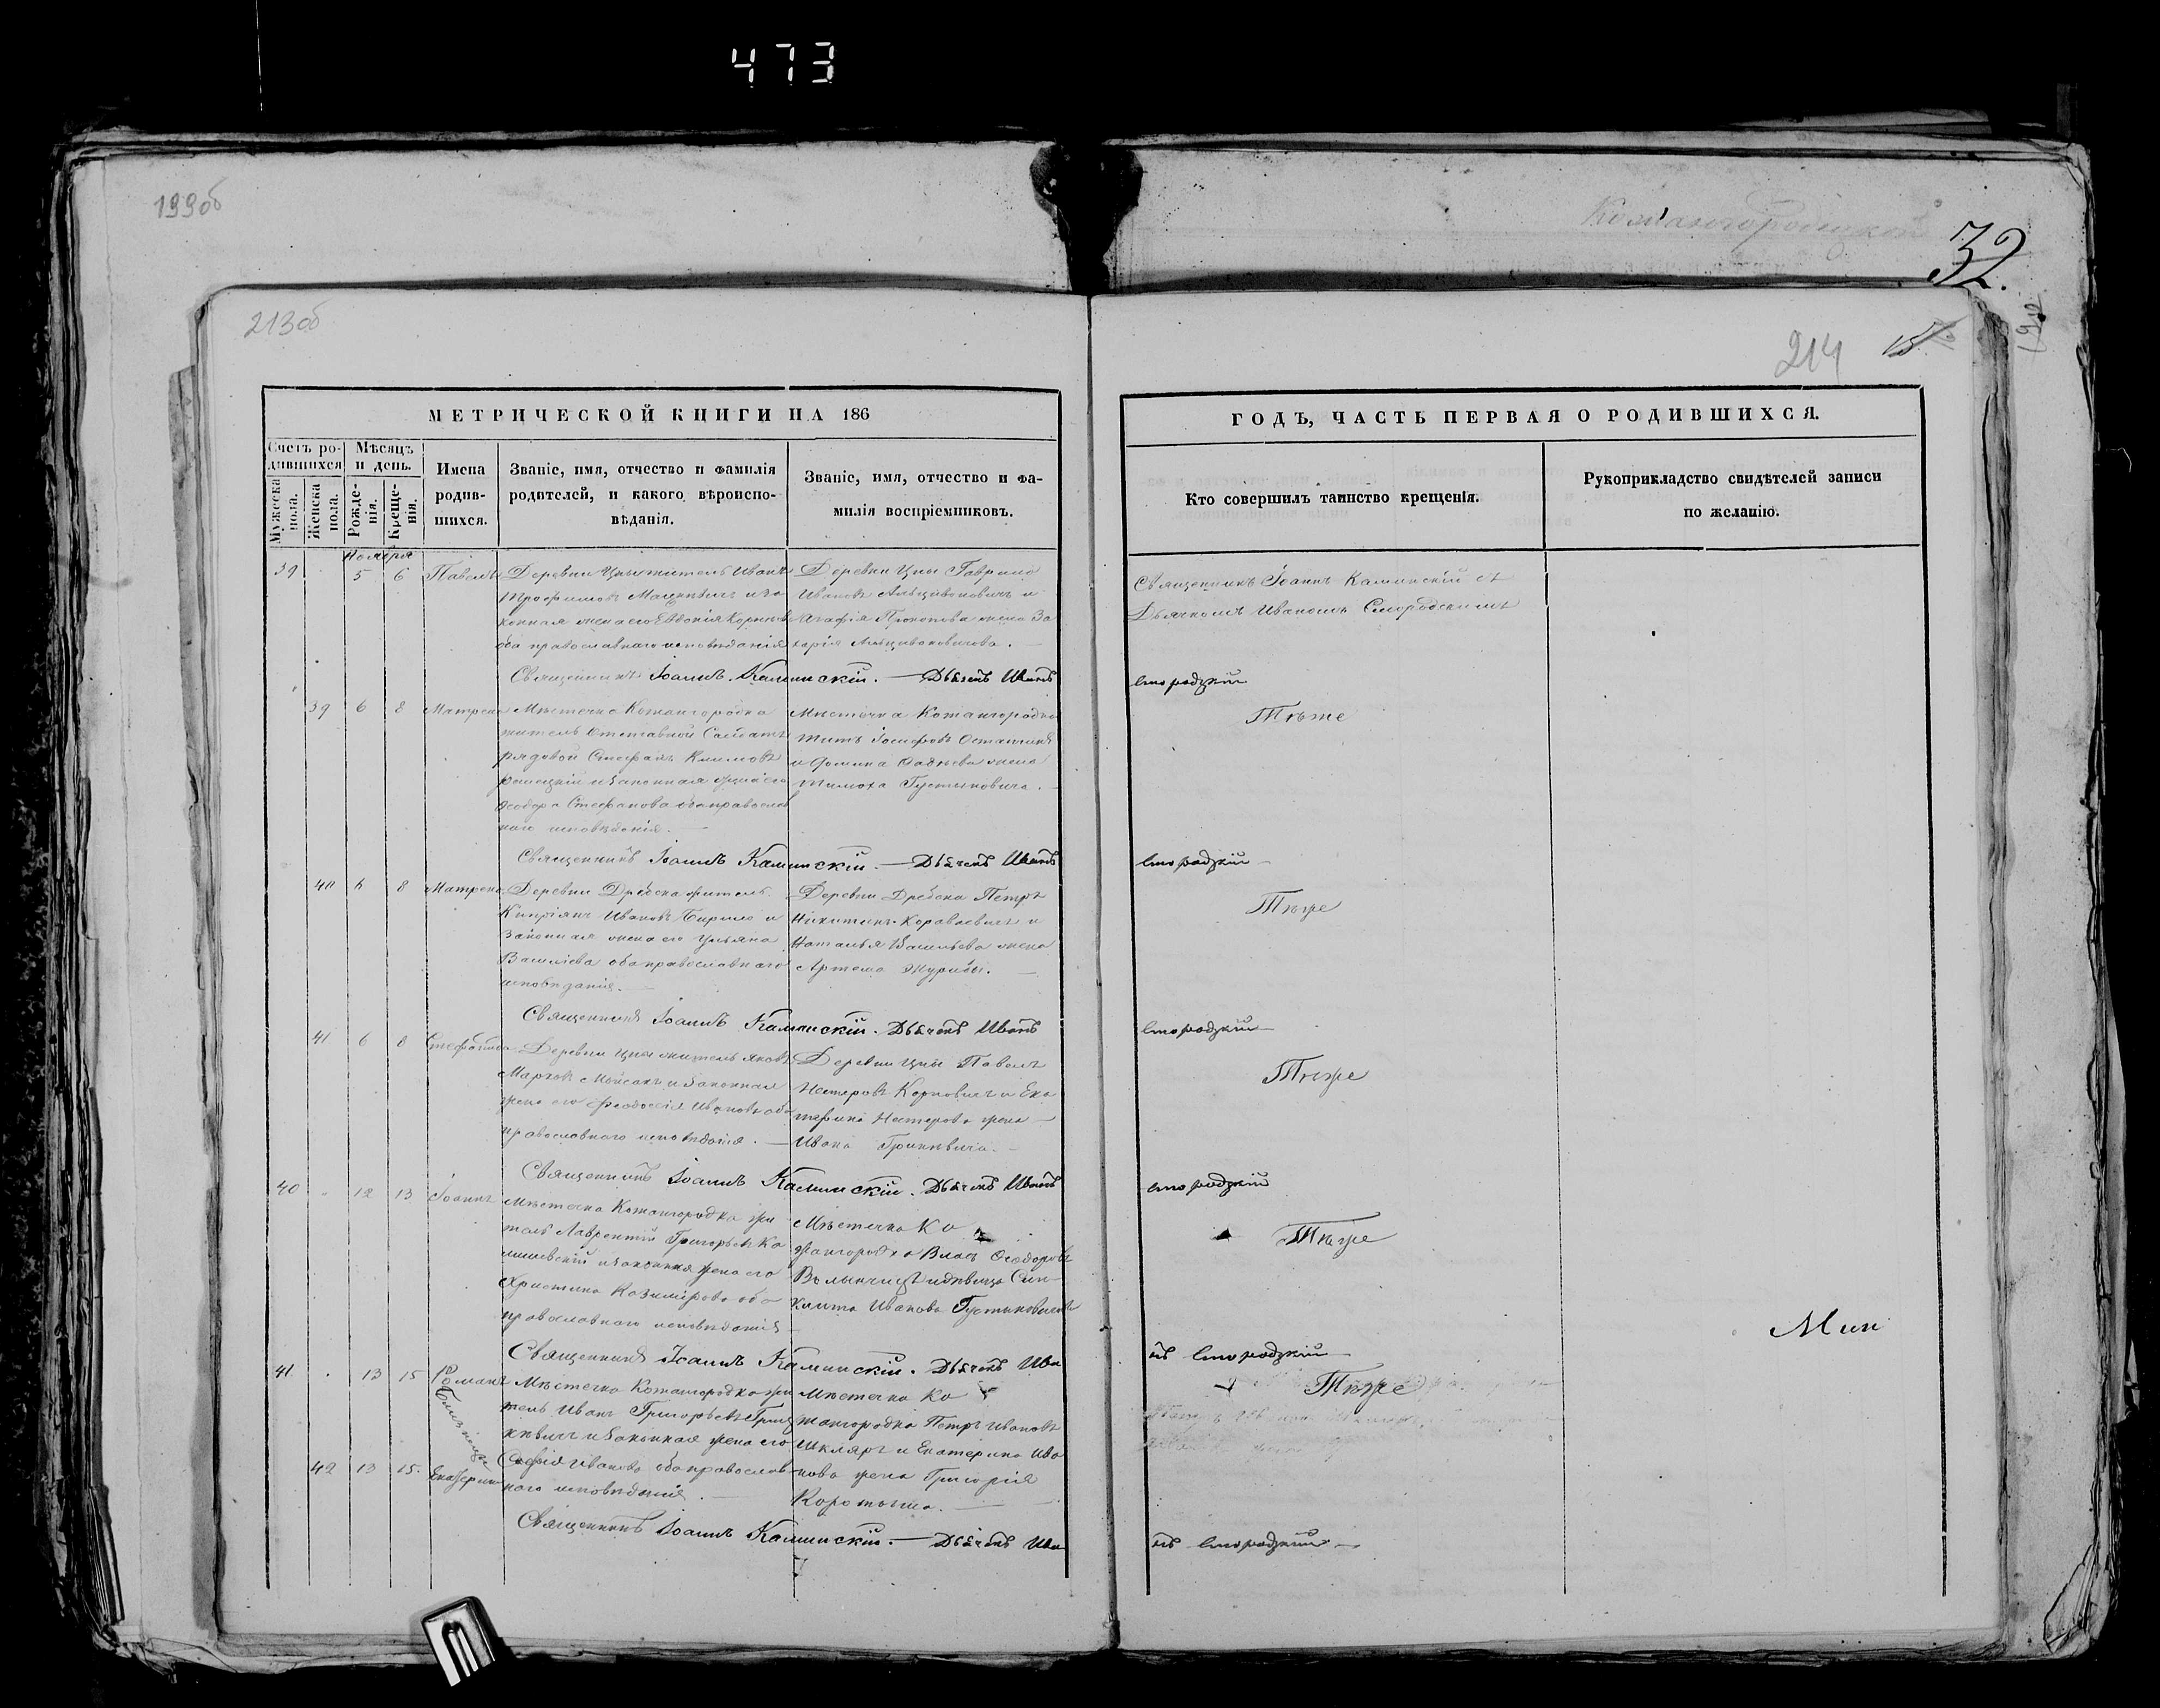 473
199об
Кожангородской
32.
192
213об
214
15
МЕТРИЧЕСКОЙ КНИГИ НА 186
ГОДЪ, ЧАСТЬ ПЕРВАЯ О РОДИВШИХСЯ.
Счетъ ро-
дившихся
Мужеска
пола.
Женска
пола.
Мѣсяцъ
и день.
Рожде-
нія.
Креще-
нія.
Имена
родив-
шихся.
Званіе, имя, отчество и фамилія
родителей, и какого вѣроиспо-
вѣданія.
Званіе, имя, отчество и фа-
милія воспріемниковъ.
Кто совершилъ таинство крещенія.
Рукоприкладство свидѣтелей записи
по желанію.
Ноября
39 5 6 Павелъ
Деревни Цны житель Иванъ
Трофимовъ Мацкевичъ и за
конная жена его Евдокія
оба православнаго исповѣданія
Деревни Цны Гаврило
Ивановъ и
Агафія Прокопьева жена За
харія
Священникъ Іоаннъ Каминскій съ
Дьячкомъ Иваномъ Смородскимъ
Священникъ Іоаннъ Каминскій. — Дьячекъ Иванъ
Смородзкій
39 6 8 Матрена
Мѣстечка Кожангородка
житель отставной Солдатъ
рядовой Стефанъ Климовъ
и законная жена его
Ѳеодора Стефанова оба православ
наго исповѣданія.
Мѣстечка Кожангородка
Титъ Іосифовъ
и Ѳомина Ѳадѣева жена
Тимоха Густыновича.
Тѣже
Священникъ Іоаннъ Каминскій. — Дьячекъ Иванъ
Смородзкій
40 6 8 Матрена
Деревни Дребска житель
Кипріянъ Ивановъ Кирило и
законная жена его Ульяна
Василіева оба православнаго
исповѣданія.
Деревни Дребска Петръ
Никитинъ Короваевичъ и
Наталья Васильева жена
Артема Журибы.
Тѣже
Священникъ Іоаннъ Каминскій. Дьячекъ Иванъ
Смородзкій
41 6 8
Деревни Цны житель Яковъ
Марковъ Мойсакъ и законная
жена его Ѳеодосія Иванова оба
православнаго исповѣданія.
Деревни Цны Павелъ
Нестеровъ Корновичъ и Ека
терина Нестерова жена
Ивана Гринкевича.
Тѣже
Священникъ Іоаннъ Каминскій. Дьячекъ Иванъ
Смородзкій
40 12 13 Іоаннъ
Мѣстечка Кожангородка жи
тель Лаврентій Григорьевъ Ка
и законная жена его
Христина Казимірова оба
православнаго исповѣданія
Мѣстечка Ко
жангородка Власъ Ѳеодоровъ
и дѣвица Син
клита Иванова Густыновичева
Тѣже
Мин
Священникъ Іоаннъ Каминскій. Дьячекъ Ива
нъ Смородзкій
41 13 15 Романъ
Близнецы
42 13 15. Екатерина
Мѣстечка Кожангородка жи
тель Иванъ Григорьевъ Гриц
кевичъ и законная жена его
Софія Иванова оба православ
наго исповѣданія.
Мѣстечка Ко
жангородка Петръ Ивановъ
Шкляръ и Екатерина Ива
нова жена Григорія
Коротыша.
Тѣже
Священникъ Іоаннъ Каминскій. — Дьячекъ Ива
нъ Смородзкій